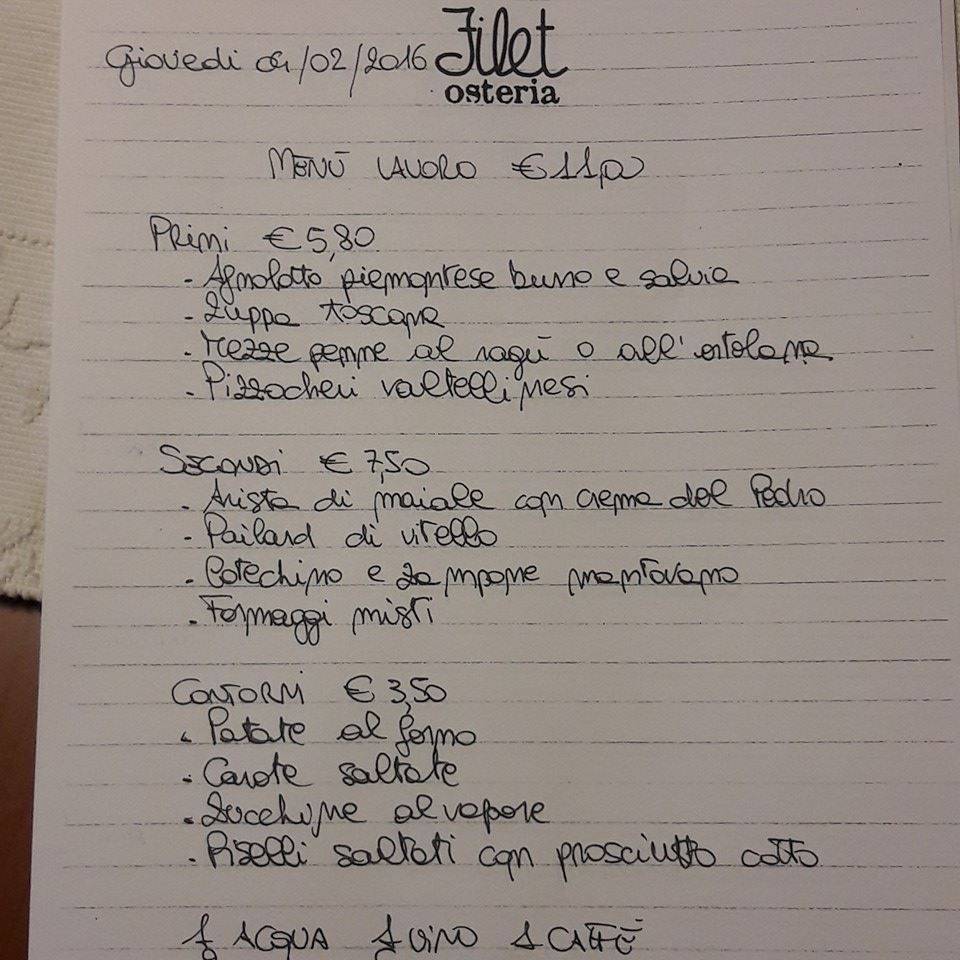 Giovedi 04/02/2016 Filet
osteria
MENÙ LAVORO € 11,00
PRIMI € 5,80
- Agnolotto piemontese burro e salvia
- Zuppa toscana
- Mezze penne al ragù o all'ortolana
- Pizzocheri valtellinesi
SECONDI € 7,50
- Arista di maiale con crema del Pedro
- Pailard di vitello
- Cotechino e zampone mantovano
- Formaggi misti
CONTORNI € 3,50
- Patate al forno
- Carote saltate
- Zucchine al vapore
- Piselli saltati con prosciutto cotto
ACQUA VINO 1 CAFFÈ